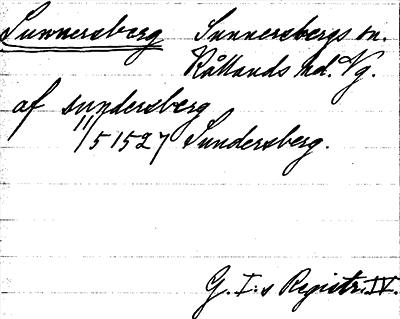 Sunnersberg Sunnersbergs sn.
Kållands hd. Vg.
af sundersberg
11/5 1527 Sundersberg.
G. I:s Registr. IV.